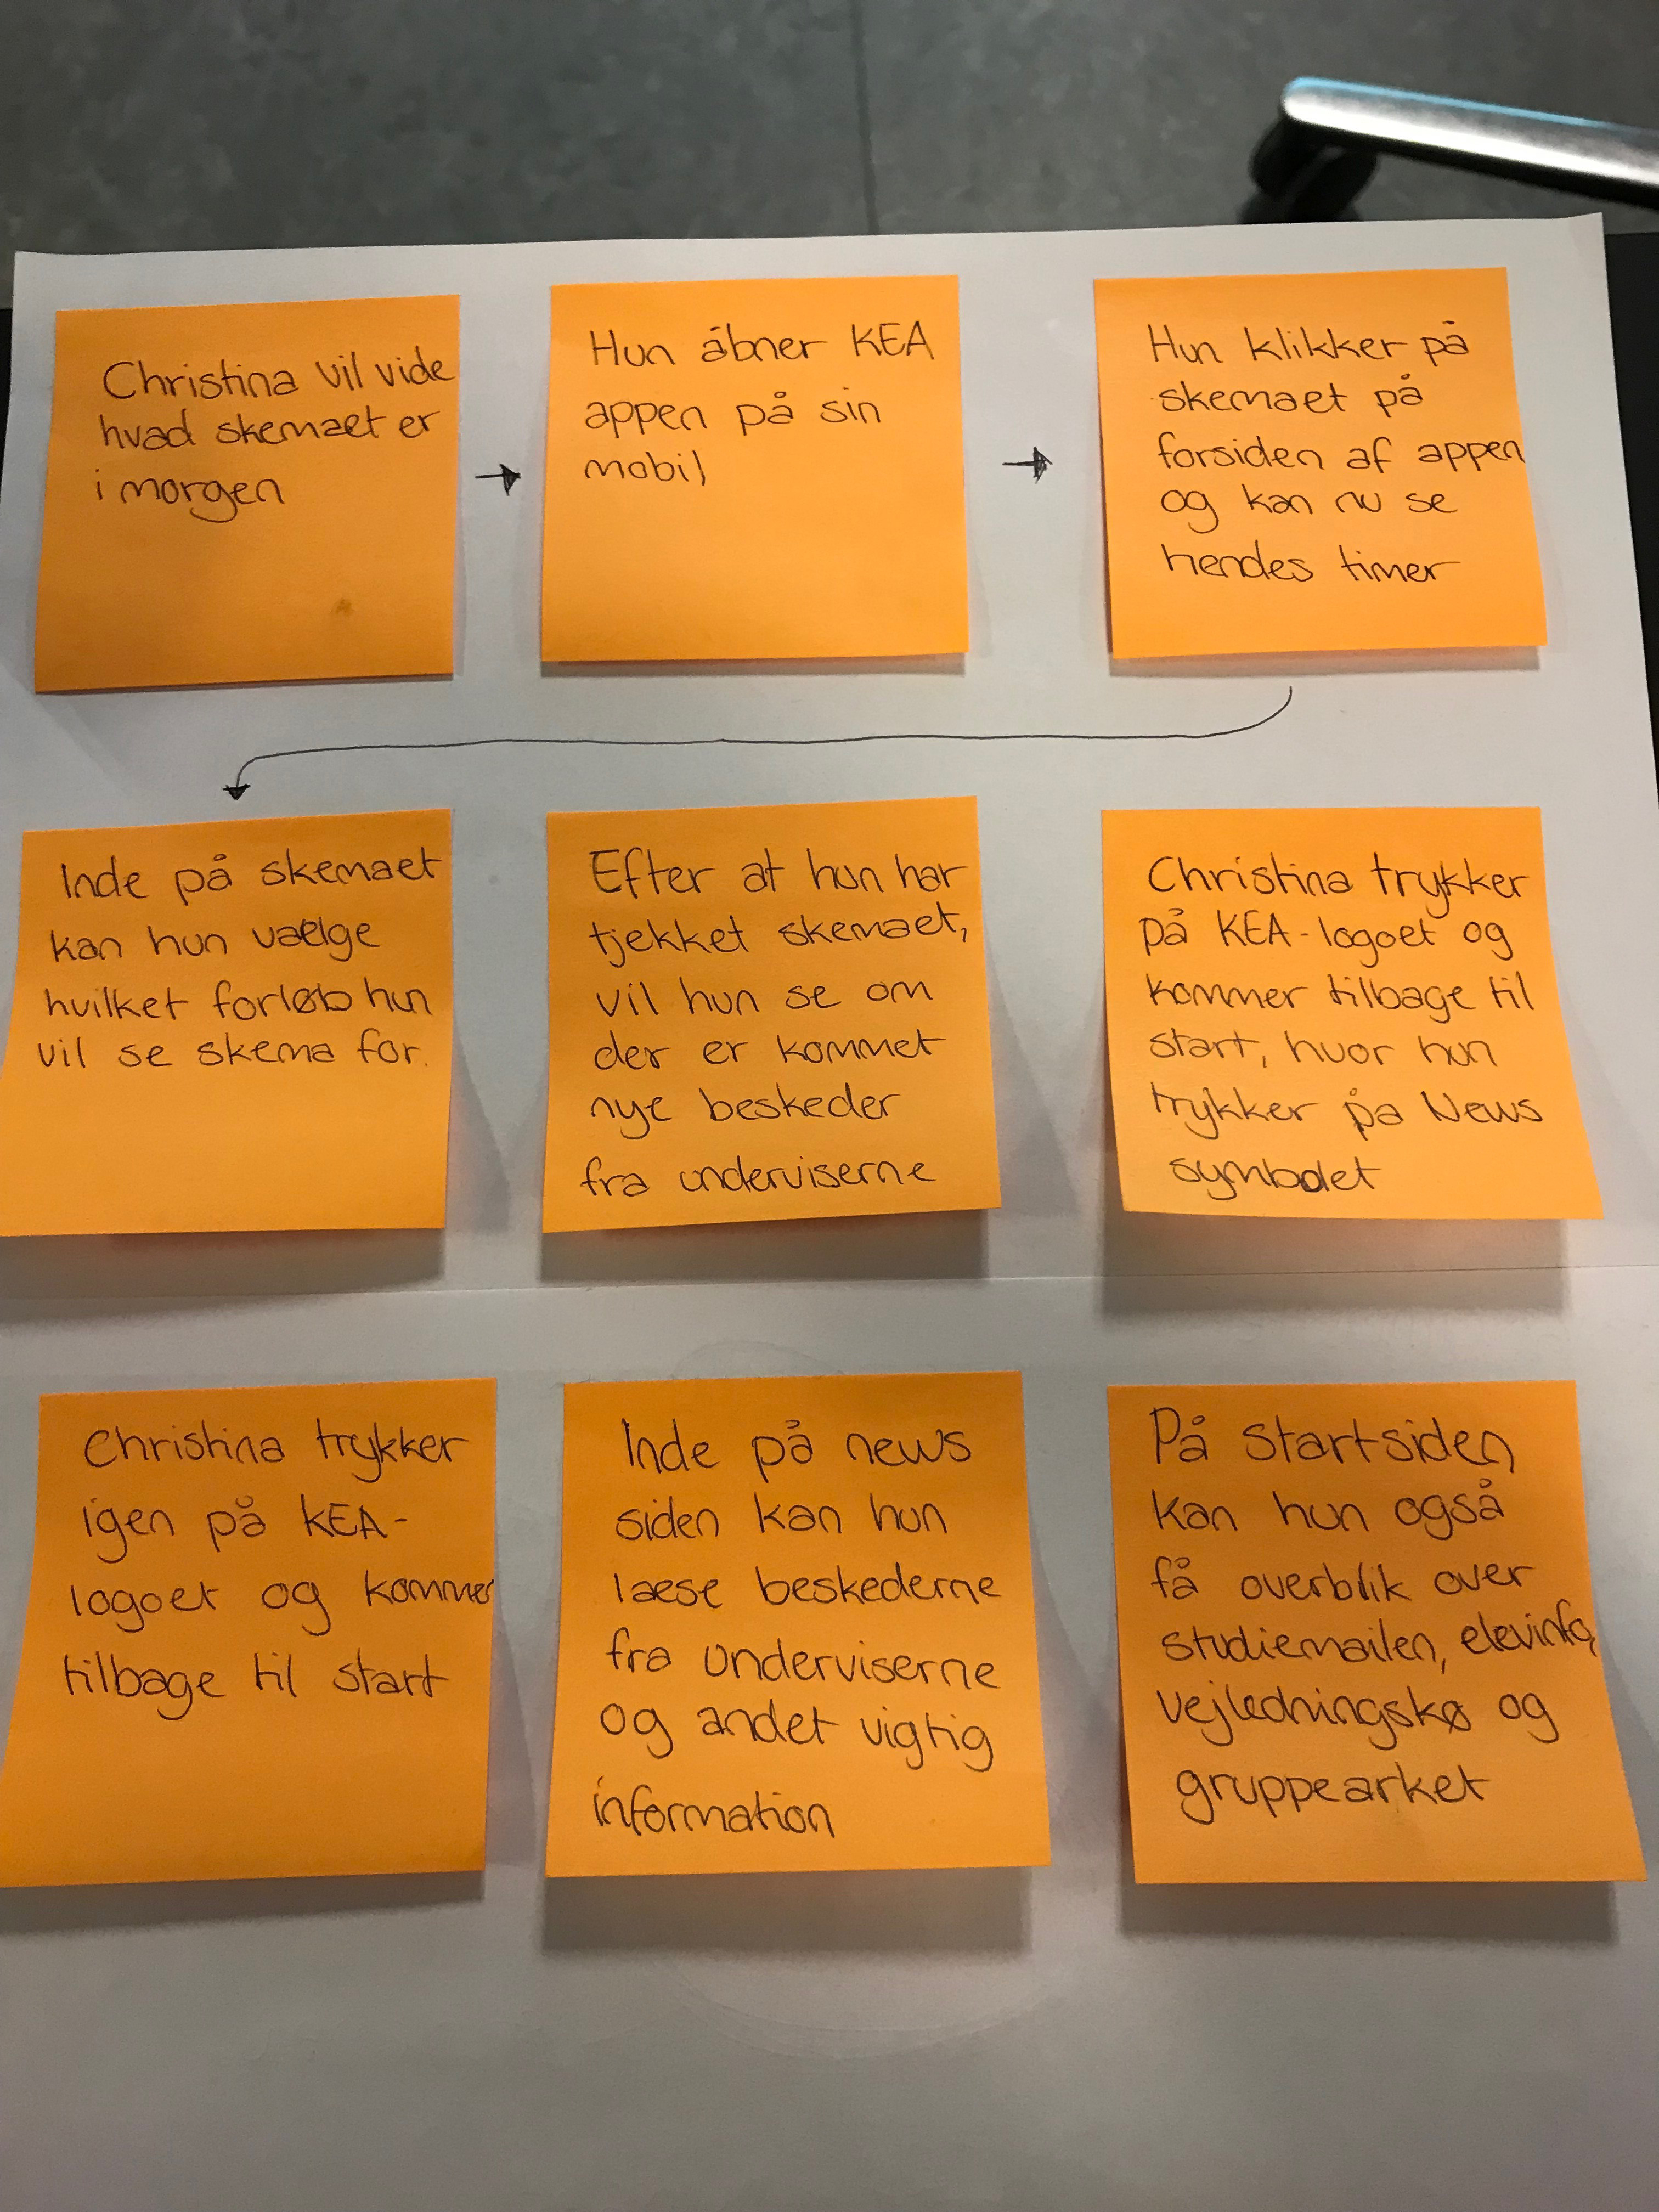 Christina vil vide
hvad skemaet er
i morgen
Hun åbner KEA
appen på sin
mobil
Hun klikker på
skemaet på
forsiden af appen
og kan nu se
hendes timer
Inde på skemaet
kan hun vælge
hvilket forløb hun
vil se skema for.
Efter at hun har
tjekket skemaet,
vil hun se om
der er kommet
nye beskeder
fra underviserne
Christina trykker
på KEA-logoet og
kommer tilbage til
start, hvor hun
trykker på News
symbolet
Christina trykker
igen på KEA-
logoet og kommer
tilbage til start
Inde på news
siden kan hun
læse beskederne
fra underviserne
og andet vigtig
information
På startsiden
kan hun også
få overblik over
studiemailen, elevinfo,
vejledningskø og
gruppearket